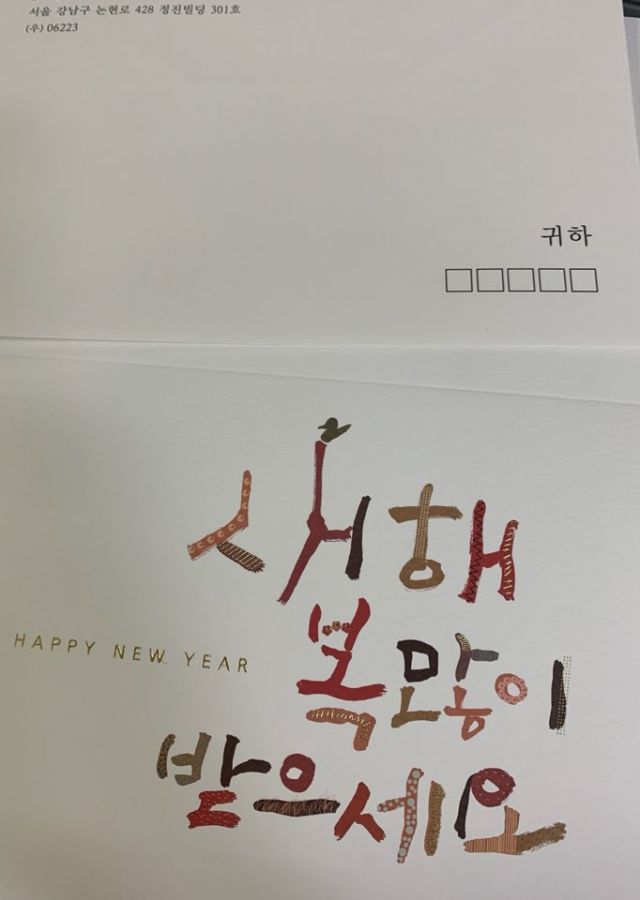 서울 강남구 논현로 428 정진빌딩 301호
(우) 06223
귀하
새해
복 많이
HAPPY NEW YEAR
받으세요